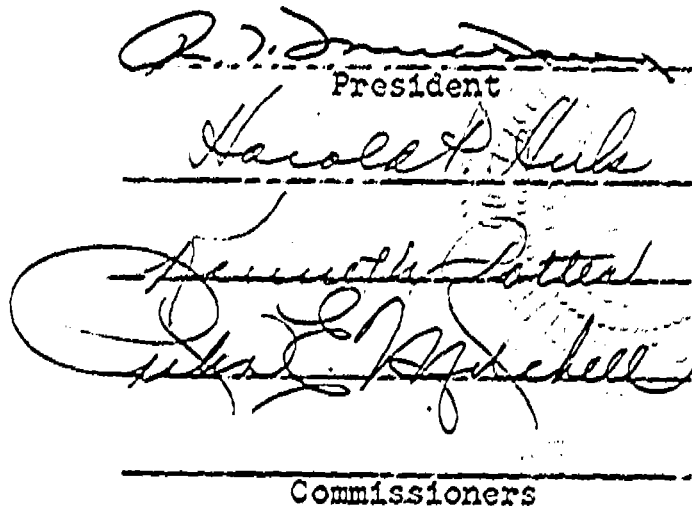 President
Harold P. Huls
Kenneth Potter
Peter E. Mitchell
Commissioners